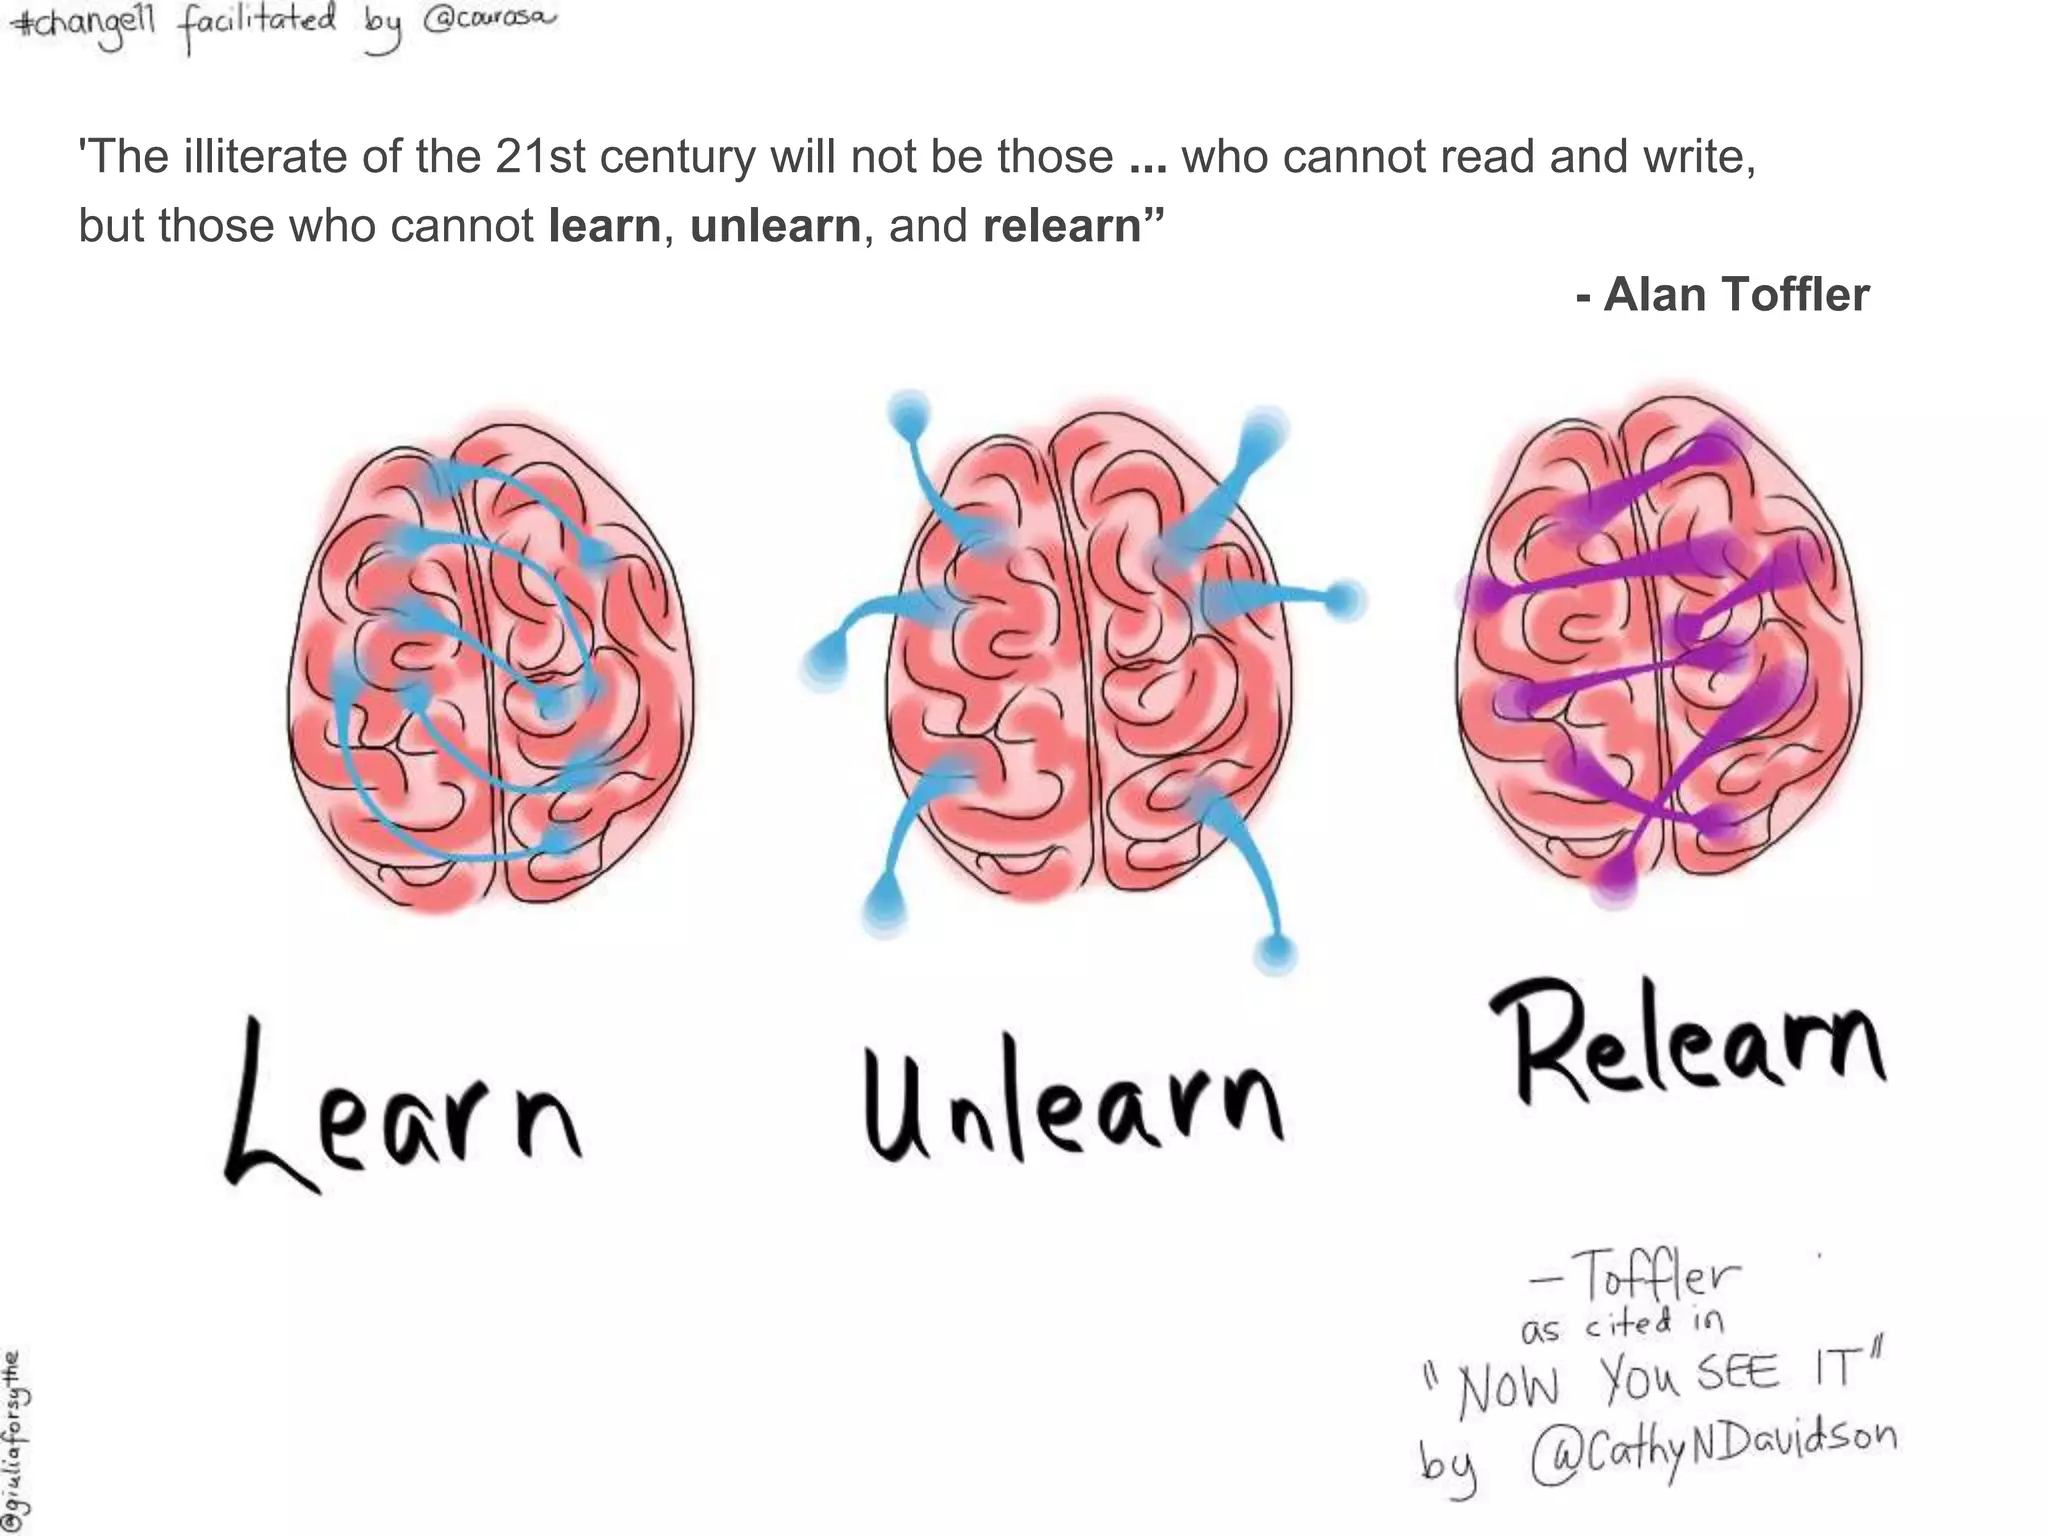 #change11 facilitated by @courosa
'The illiterate of the 21st century will not be those ... who cannot read and write,
but those who cannot learn, unlearn, and relearn”
- Alan Toffler
Learn
Unlearn
Relearn
- Toffler
as cited in
"NOW YOU SEE IT"
by @CathyNDavidson
@giuliaforsythe